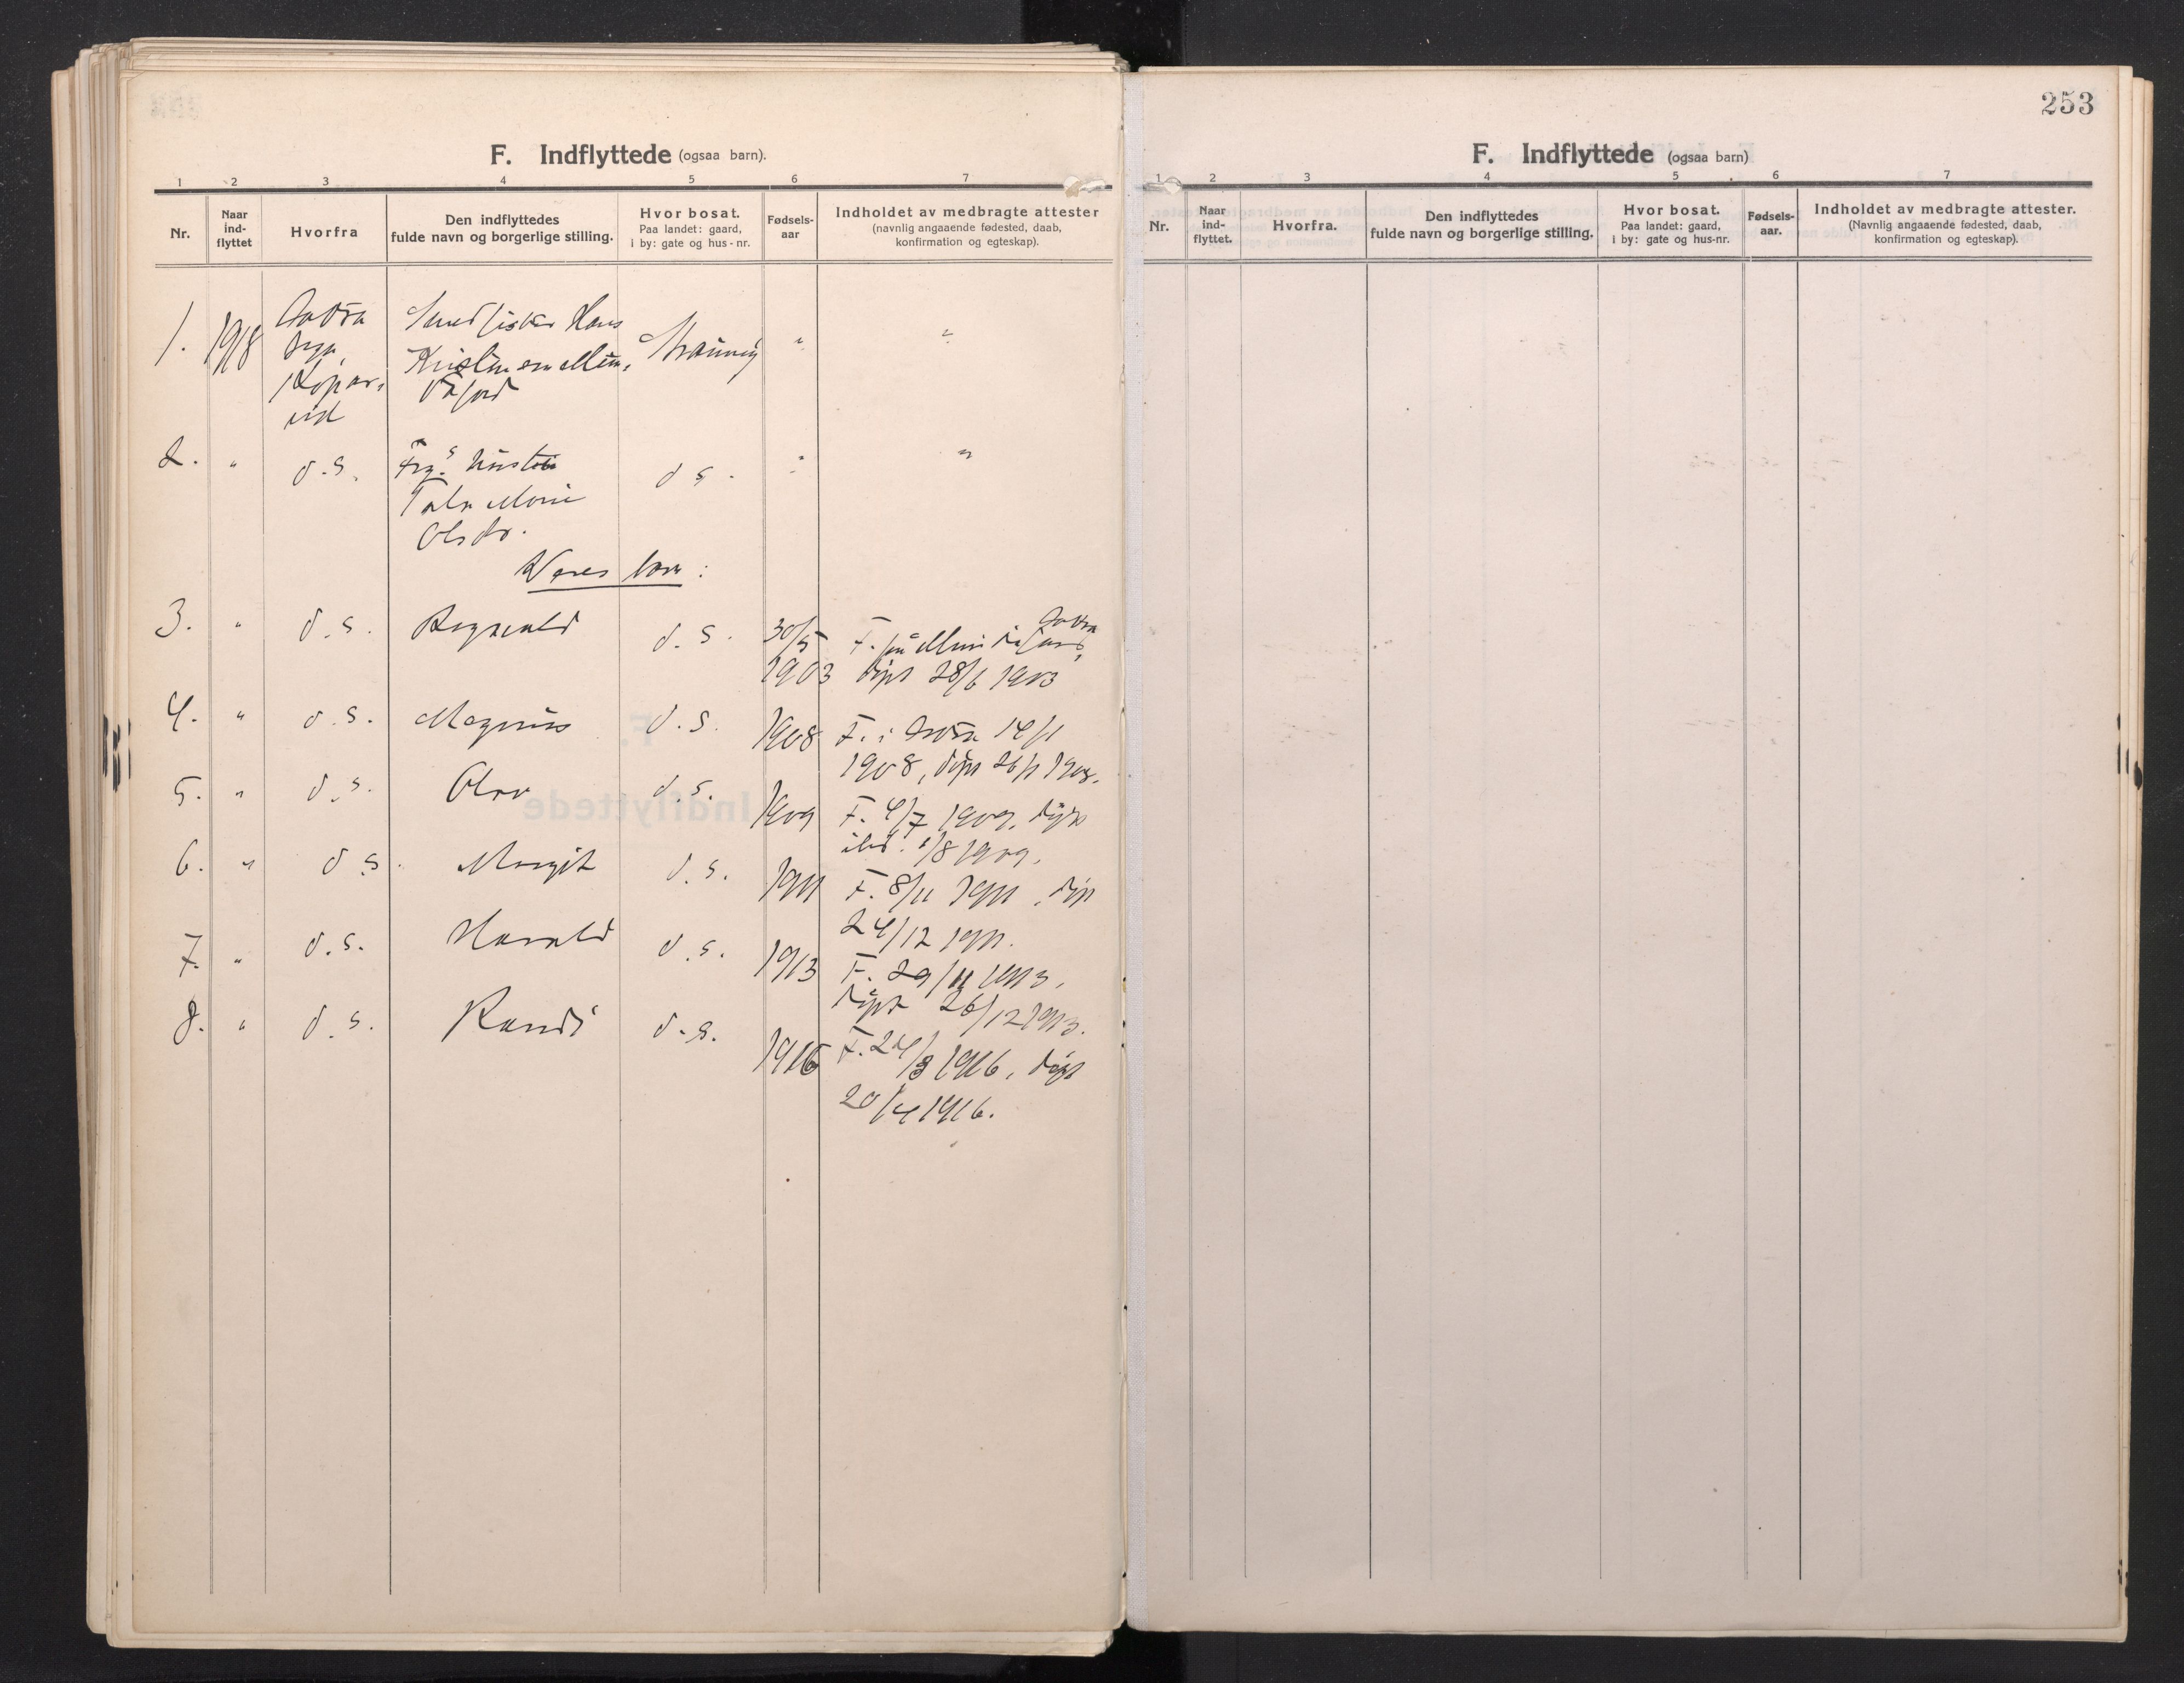 F. Indflyttede (ogsaa barn).
1 2 3 4 5 6 7
Nr.
Naar ind-flyttet
Hvorfra
Den indflyttedes
fulde navn og borgerlige stilling.
Hvor bosat.
Paa landet: gaard,
i by: gate og hus-nr.
Fødsels-
aar
Indholdet av medbragte attester
(navnlig angaaende fødested, daab,
konfirmation og egteskap).
1. 1918
Hans
2. " d.s. d s. " "
Tala Marie
Olsdtr.
Deres barn:
3. " d.s. Ragnvald d.s. 30/5
1903 døpt 28/6 1903
4. " d.s. Magnus d.s. 1908 F. i 14/1
1908, døpt 26/1 1908.
5. " d.s. Olav d.s. 1909 F. 4/7 1909. døpt
ibd. 1/8 1909.
6. " d s. Margit d.s. 1911 F. 8/11 1911. døpt
24/12 1911.
7. " d.s. Harald d.s. 1913 F. 29/11 1913.
døpt 26/12 1913.
8. " d.s. Randi d.s. 1916 F. 24/3 1916. døpt
20/4 1916.
253
F. Indflyttede (ogsaa barn)
1 2 3 4 5 6 7
Nr.
Naar
ind-
flyttet.
Hvorfra.
Den indflyttedes
fulde navn og borgerlige stilling.
Hvor bosat.
Paa landet: gaard,
i by: gate og hus-nr.
Fødsels-
aar.
Indholdet av medbragte attester.
(Navnlig angaaende fødested, daab,
konfirmation og egteskap).